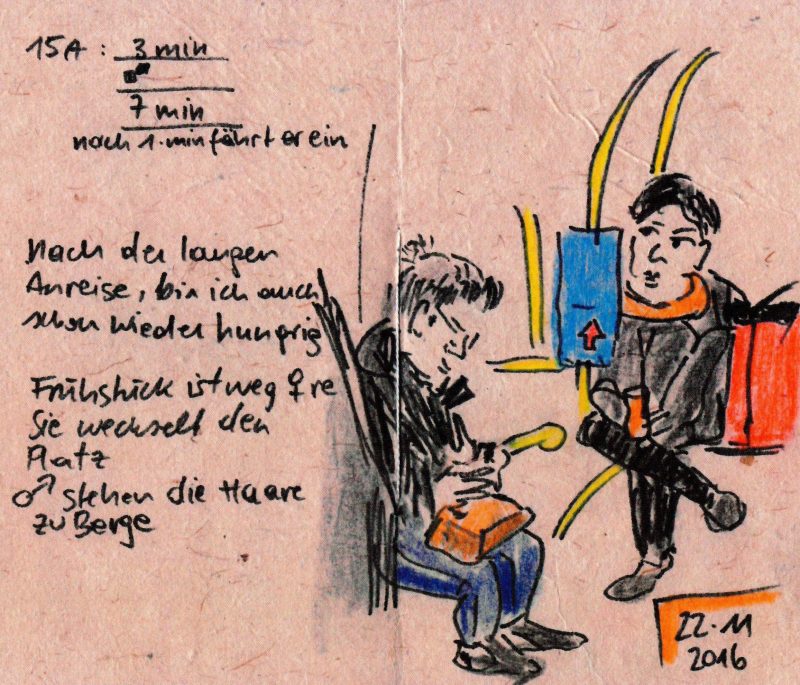 15A: 3 min
7 min
nach 1.min fährt er ein
Nach der langen
Anreise, bin ich auch
schon wieder hungrig
Frühstück ist weg ♀ re
Sie wechselt den
Platz
♂ stehen die Haare
zu Berge
22.11
2016